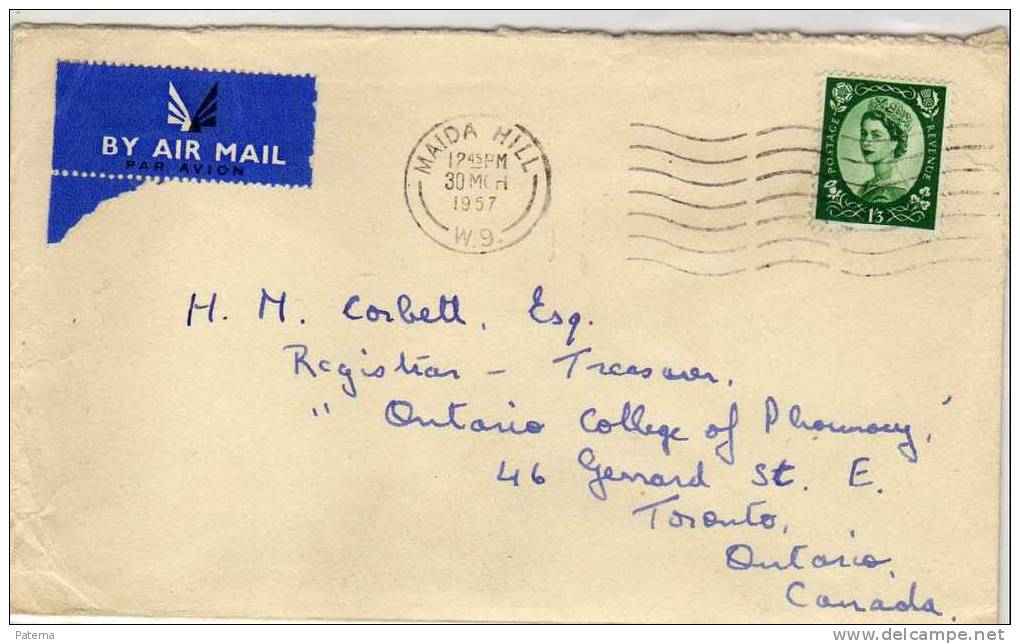 BY AIR MAIL
PAR AVION
MAIDA HILL
12 45 PM
30 MCH
1957
W.9.
POSTAGE
REVENUE
1/3
H. M. Corbett, Esq.
Registrar - Treasurer,
"Ontario College of Pharmacy,"
46 Gerrard St. E.
Toronto,
Ontario,
Canada.
Paterna
www.delcampe.net